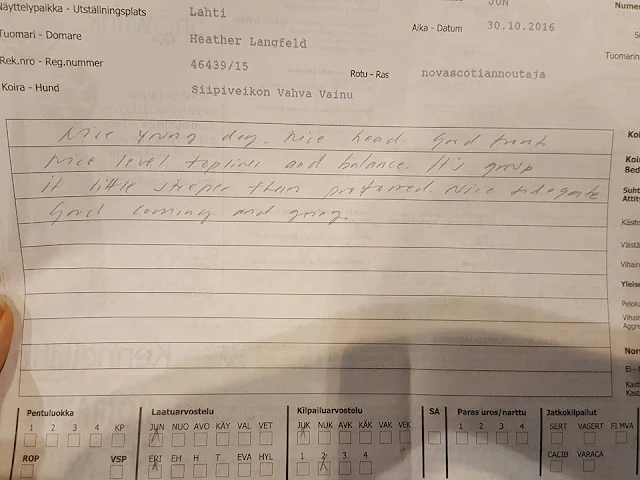 JUN
Numer
Näyttelypaikka - Utställningsplats Lahti Aika - Datum 30.10.2016
Tuomari - Domare Heather Langfeld
Tuomarin
Rek.nro - Reg.nummer 46439/15 Rotu - Ras novascotiannoutaja
Koira - Hund Siipiveikon Vahva Vainu
Nice young dog. Nice head. Good front
Nice level topline and balance. It's group
it little steeper than preferred. Nice sidegate
Good coming and going.
Koi
Koir
Bed
Suht
Attit
Käsite
Väistä
Vihain
Yleise
Peloka
Vihain
Aggre
Nor
Ei -
Kast
Kast
Pentuluokka Laatuarvostelu Kilpailuarvostelu SA Paras uros/narttu Jatkokilpailut
1 2 3 4 KP JUN NUO AVO KÄY VAL VET JUK NUK AVK KÄK VAK VEK 1 2 3 4 SERT VASERT FI MVA
ROP VSP ERI EH H T EVA HYL 1 2 3 4 CACIB VARACA